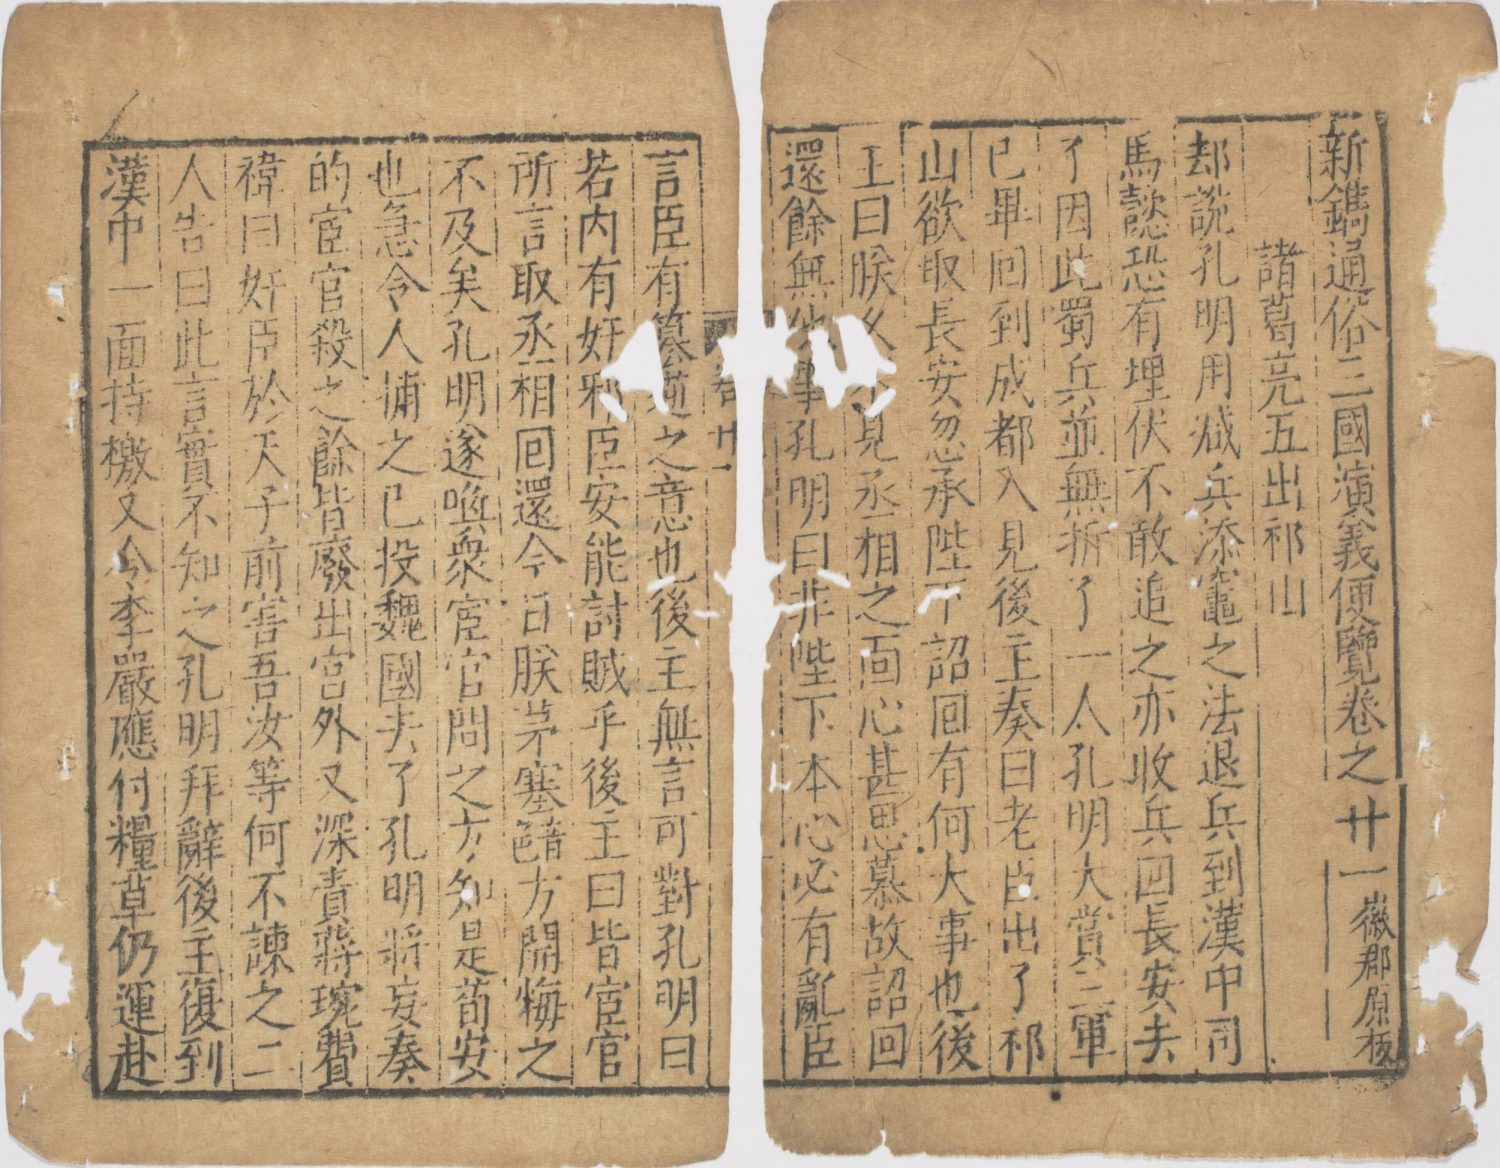 新鐫通俗三國演義便覽卷之廿一 徽郡原板
諸葛亮五出祁山
却說孔明用減兵添竈之法退兵到漢中司
馬懿恐有埋伏不敢追之亦收兵回長安去
了因此蜀兵並無折了一人孔明大賞三軍
已畢囘到成都入見後主奏曰老臣出了祁
山欲取長安忽承陛下詔囘有何大事也後
主曰朕久不見丞相之面心甚思慕故詔回
還餘無他事孔明曰非陛下本心必有亂臣
卷廿一
言臣有篡逆之意也後主無言可對孔明曰
若内有奸邪臣安能討賊乎後主曰皆宦官
所言取丞相囘還今日朕茅塞䦨方開悔之
不及矣孔明遂喚衆宦官問之方知是苟安
也急令人捕之已投魏國去了孔明將妄奏
的宦官殺之餘皆廢出宫外又深責蔣琬費
禕曰奸臣於天子前害吾汝等何不諫之二
人告曰此言實不知之孔明拜辭後主復到
漢中一面持檄又令李嚴應付糧草仍運赴